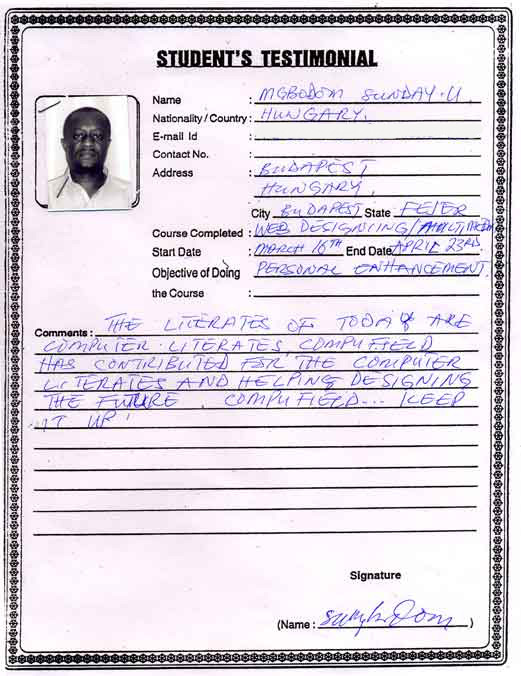 STUDENT'S TESTIMONIAL
Name : MGBODOM SUNDAY. U.
Nationality / Country : HUNGARY.
E-mail Id :
Contact No. :
Address : BUDAPEST
HUNGARY.
City BUDAPEST State FEJER
Course Completed : WEB DESIGNING / MULTIMEDIA
Start Date : MARCH 16TH End Date APRIL 23RD
Objective of Doing : PERSONAL ENHANCEMENT.
the Course :
Comments : THE LITERATES OF TODAY ARE
COMPUTER LITERATES. COMPUFIELD
HAS CONTRIBUTED FOR THE COMPUTER
LITERATES AND HELPING DESIGNING
THE FUTURE. COMPUFIELD... KEEP
IT UP!
Signature
(Name : )